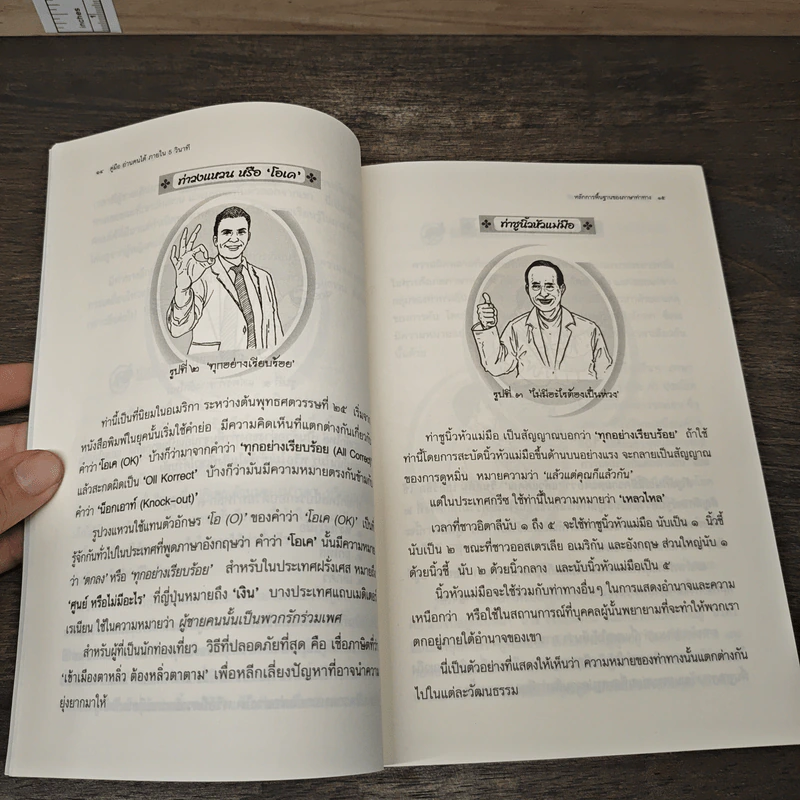 inches
๑๔ คู่มือ อ่านคนได้ ภายใน 5 วินาที
ท่าวงแหวน หรือ 'โอเค'
รูปที่ ๒ 'ทุกอย่างเรียบร้อย'
ท่านี้เป็นที่นิยมในอเมริกา ระหว่างต้นพุทธศตวรรษที่ ๒๕ เริ่มจาก
หนังสือพิมพ์ในยุคนั้นเริ่มใช้คำย่อ มีความคิดเห็นที่แตกต่างกันเกี่ยวกับ
คำว่า โอเค (OK) บ้างก็ว่ามาจากคำว่า 'ทุกอย่างเรียบร้อย (All Correct)'
แล้วสะกดผิดเป็น 'Oll Korrect' บ้างก็ว่ามันมีความหมายตรงกันข้ามกับ
คำว่า 'น็อกเอาท์ (Knock-out)'
รูปวงแหวนใช้แทนตัวอักษร 'โอ (O)' ของคำว่า 'โอเค (OK)' เป็นที่
รู้จักกันทั่วไปในประเทศที่พูดภาษาอังกฤษว่า คำว่า 'โอเค' นั้นมีความหมาย
ว่า 'ตกลง' หรือ 'ทุกอย่างเรียบร้อย' สำหรับในประเทศฝรั่งเศส หมายถึง
'ศูนย์ หรือไม่มีอะไร' ที่ญี่ปุ่นหมายถึง 'เงิน' บางประเทศแถบเมดิเตอร์
เรเนียน ใช้ในความหมายว่า ผู้ชายคนนั้นเป็นพวกรักร่วมเพศ
สำหรับผู้ที่เป็นนักท่องเที่ยว วิธีที่ปลอดภัยที่สุด คือ เชื่อภาษิตที่ว่า
'เข้าเมืองตาหลิ่ว ต้องหลิ่วตาตาม' เพื่อหลีกเลี่ยงปัญหาที่อาจนำความ
ยุ่งยากมาให้
หลักการพื้นฐานของภาษาท่าทาง ๑๕
ท่าชูนิ้วหัวแม่มือ
รูปที่ ๓ 'ไม่มีอะไรต้องเป็นห่วง'
ท่าชูนิ้วหัวแม่มือ เป็นสัญญาณบอกว่า 'ทุกอย่างเรียบร้อย' ถ้าใช้
ท่านี้โดยการสะบัดนิ้วหัวแม่มือขึ้นด้านบนอย่างแรง จะกลายเป็นสัญญาณ
ของการดูหมิ่น หมายความว่า 'แล้วแต่คุณก็แล้วกัน'
แต่ในประเทศกรีซ ใช้ท่านี้ในความหมายว่า 'เหลวไหล'
เวลาที่ชาวอิตาลีนับ ๑ ถึง ๕ จะใช้ท่าชูนิ้วหัวแม่มือ นับเป็น ๑ นิ้วชี้
นับเป็น ๒ ขณะที่ชาวออสเตรเลีย อเมริกัน และอังกฤษ ส่วนใหญ่นับ ๑
ด้วยนิ้วชี้ นับ ๒ ด้วยนิ้วกลาง และนับนิ้วหัวแม่มือเป็น ๕
นิ้วหัวแม่มือจะใช้ร่วมกับท่าทางอื่นๆ ในการแสดงอำนาจและความ
เหนือกว่า หรือใช้ในสถานการณ์ที่บุคคลผู้นั้นพยายามที่จะทำให้พวกเรา
ตกอยู่ภายใต้อำนาจของเขา
นี่เป็นตัวอย่างที่แสดงให้เห็นว่า ความหมายของท่าทางนั้นแตกต่างกัน
ไปในแต่ละวัฒนธรรม